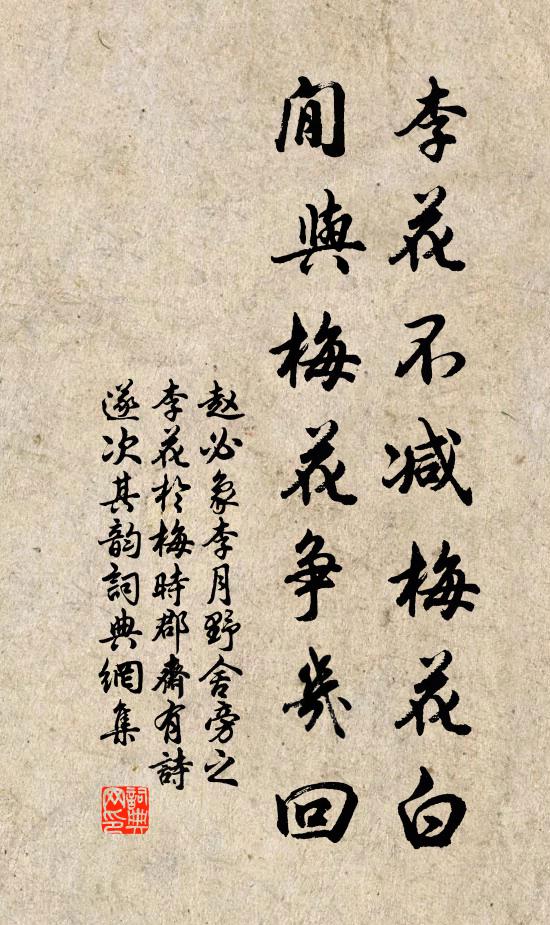 李花不减梅花白
閒與梅花争幾回
赵必象李月野舍旁之
李花於梅時郡齋有詩
遂次其韵詞典網集
詞典网印